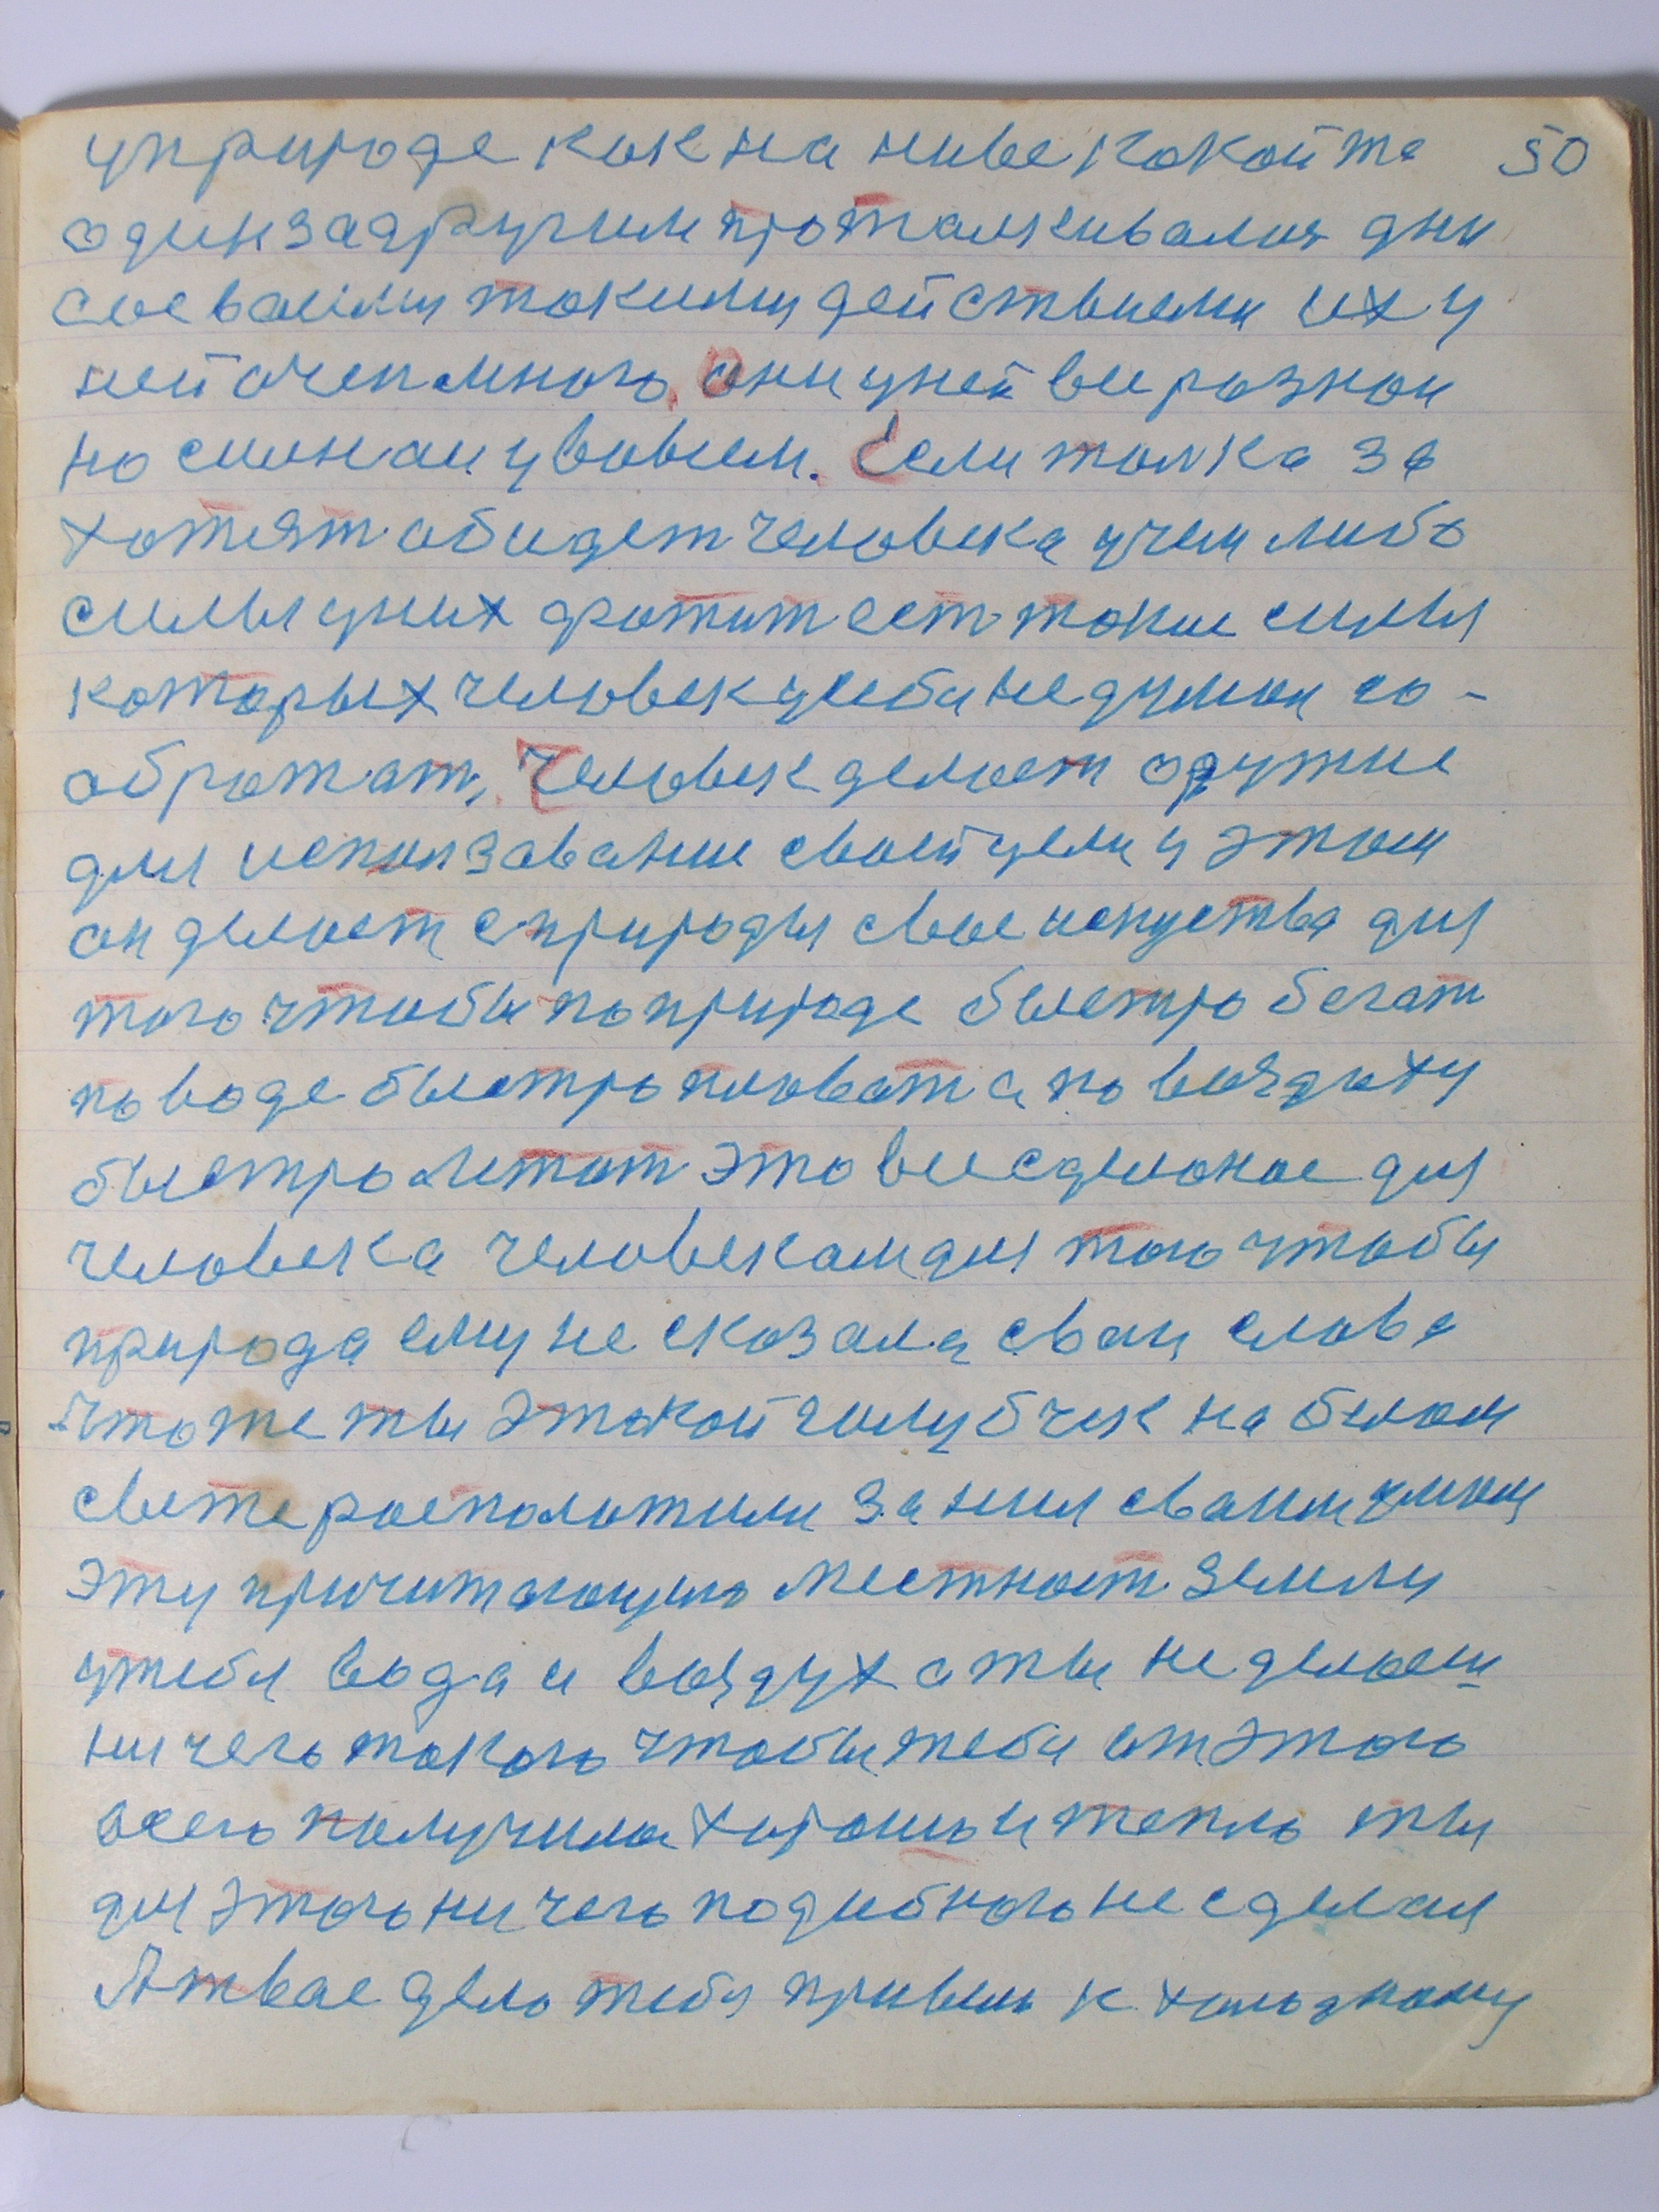 уприроде как на ниве какойта 50
один задругим проталкивалия дни
сваими такими действиеми их у
ней очен много, они уней вси разнаи
но силнаи увовсем. Если толка за
хотят обидет человека учем либо
силы уних фатит ест такие силы
каторых человек усебя недумаи со-
абражат, Человек делает аружие
для исползавание своей цели у этом
он делает сприроды свое искуства для
того чтобы поприроде быстро бегат
по воде быстро плават а по воздуху
быстро летат это все сделаное для
человека человекам для того чтобы
природа ему не сказала сваи слава
Чтоже ты этакой голубчек на белом
свете расположили занил сваим умом
эту причитающую местност землу
утебя вода и воздух а ты не делаеш
ни чего такого чтобы тебя от этого
всего получила хорошо и тепло ты
для этого ни чего подобного не сделал
А твае дело тебя привело к холодному